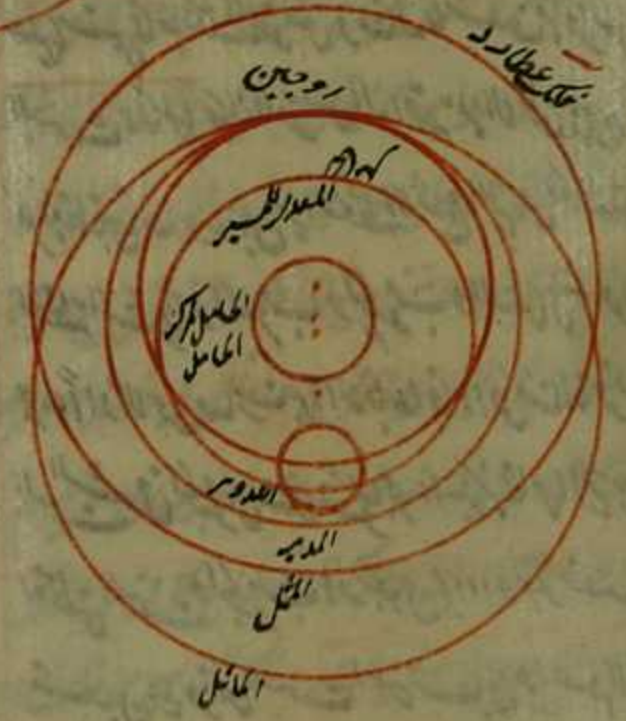 فلك عطارد
اوجين
المعدل للمسير
الحامل لمركز
الحامل
التدوير
المدير
الممثل
المائل